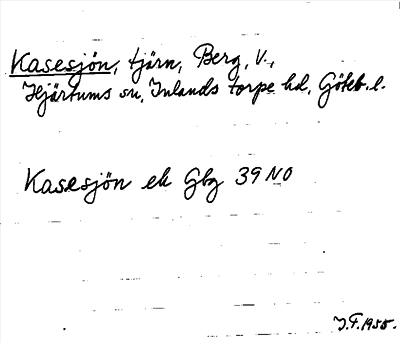 Kasesjön, tjärn, Berg, V.,
Hjärtums sn, Inlands torpe hd, Göteb. l.
Kasesjön ek Gbg 39 NO
J.F. 1955.